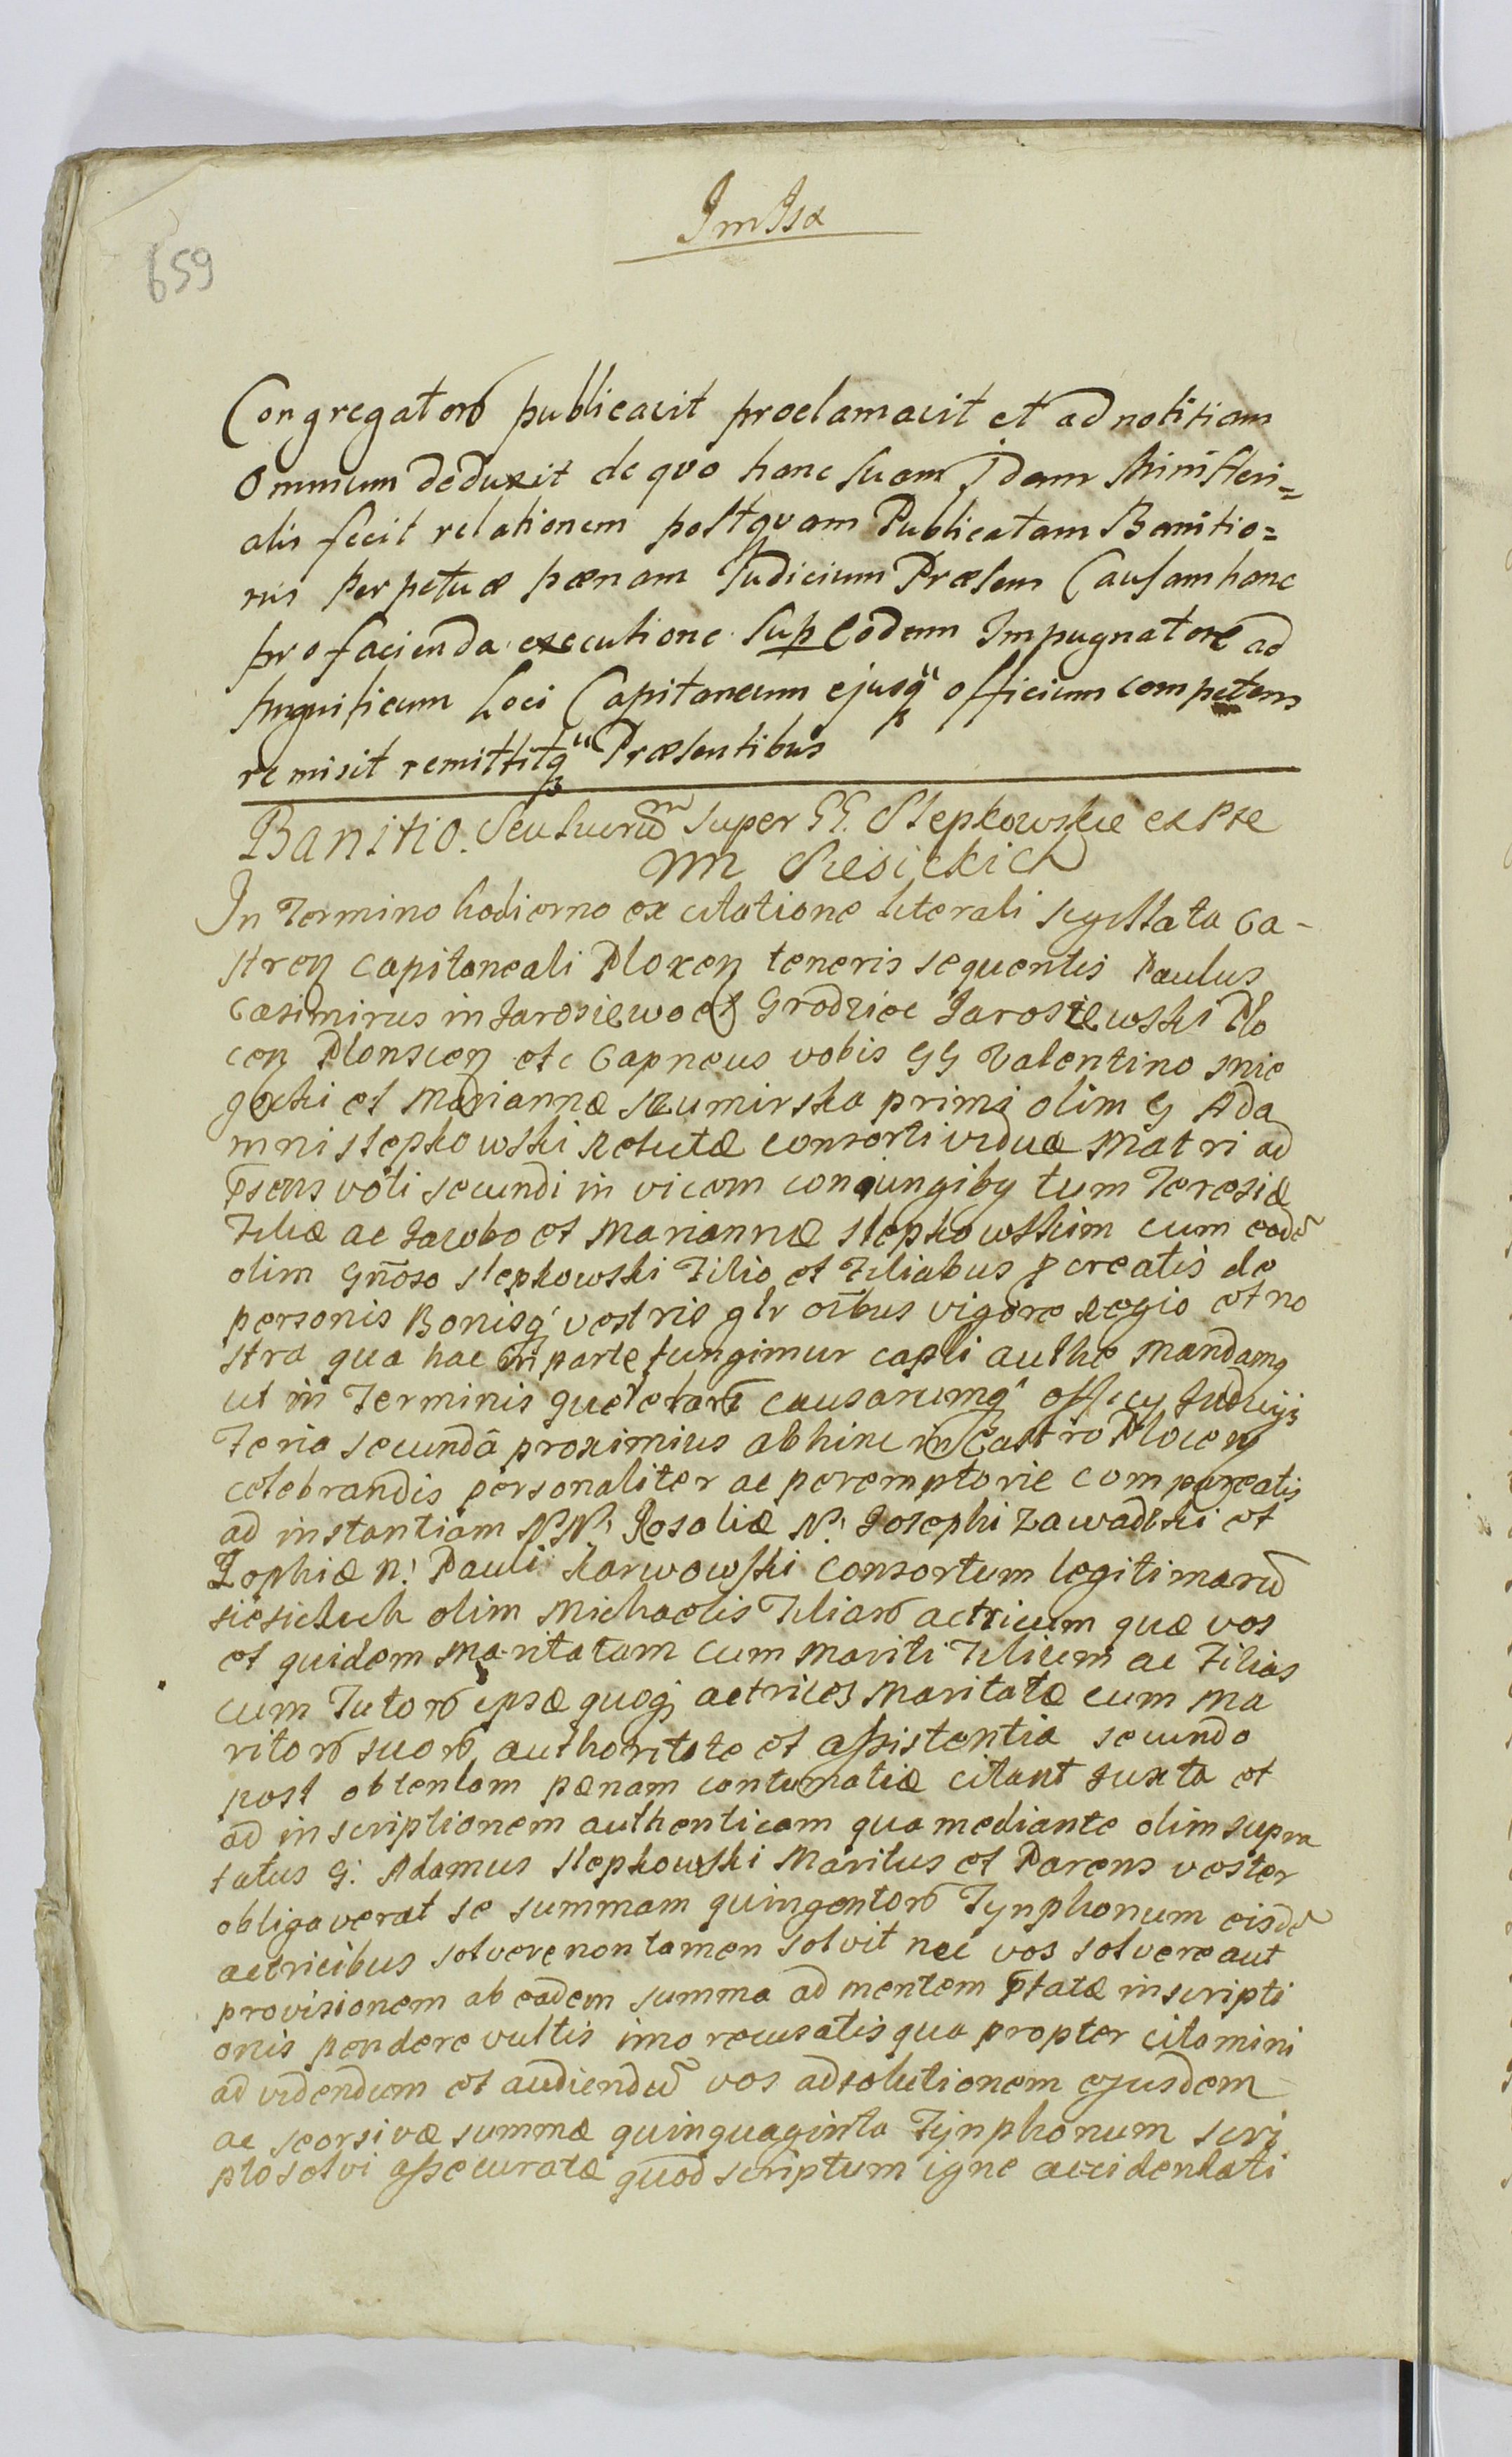 659
Congregatorũ publicavit proclamavit et ad notitiam
Omnium deduxit de quo hanc suam Idem Ministeri=
alis fecit relationem postquam Publicatam Banitio=
nis Perpetuæ pænam Judicium Præsens Causam hanc
pro facienda executione sup Eodem Impugnatore ad
Magnificum Loci Capitaneum ejusq officium competens
remisit remittitq Præsentibus
Banitio. super GG. Slepkowskie ex Pte
In Termino hodierno ex citatione literali sygillata Ca-
stren Capitaneali Plocen teneris sequentis Paulus
Casimirus in Jarosiewo et Grodziec Jarosiewski Plo
cen Plonscen etc Capneus vobis GG Valentino
et Mariannæ primi olim G Ada
mi Slepkowski Relictæ consorti viduæ Matri ad
p̄sens voti secundi in vicem coniungiby tum Teresiæ
Filiæ ac Jacobo et Mariannæ Slepkowskim cum eodē
olim Gñoso Slepkowski Filio et Filiabus pcreatis de
personis Bonisq vestris glr oĩbus vigore Regio et no
stra qua hac in parte fungimur capli authe Mandamq
ut in Terminis querelarũ causarumq officy Judicijs
Feria secundā proximius abhinc in Castro Plocen
celebrandis personaliter ac peremptorie compareatis
ad instantiam NN. Rosaliæ N. Josephi Zawadzki et
Zophiæ N. Pauli Karwowski Consortum legitimarũ
siesickich olim Michaelis Filiarũ actricum quæ vos
et quidem Maritatam cum Mariti Filium ac Filias
cum Tutorũ ipsæ quoq actrices Maritatæ cum Ma
ritorũ suorũ authoritate et assistentia secundo
post obtentam pænam contumatiæ citant Juxta et
ad inscriptionem authenticam qua mediante olim supra
tatus G. Adamus Slepkowski Maritus et Parens vester
obligaverat se summam quingentorũ Tynphonum eisdē
actricibus solvere non tamen solvit nec vos solvere aut
provisionem ab eadem summa ad mentem p̄tatæ inscripti
onis pendere vultis imo recusatis qua propter citamini
ad videndum et audiendũ vos ad solutionem ejusdem
ac seorsivæ summæ quinquaginta Tynphonum scri
pto solvi assecuratæ quod scriptum igne accidentali